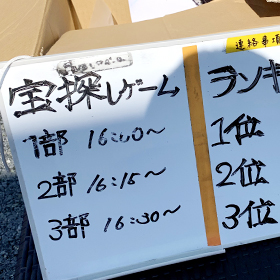 宝探しゲーム
1部 16:00~
2部 16:15~
3部 16:30~
連絡事項
ランキ
1位
2位
3位